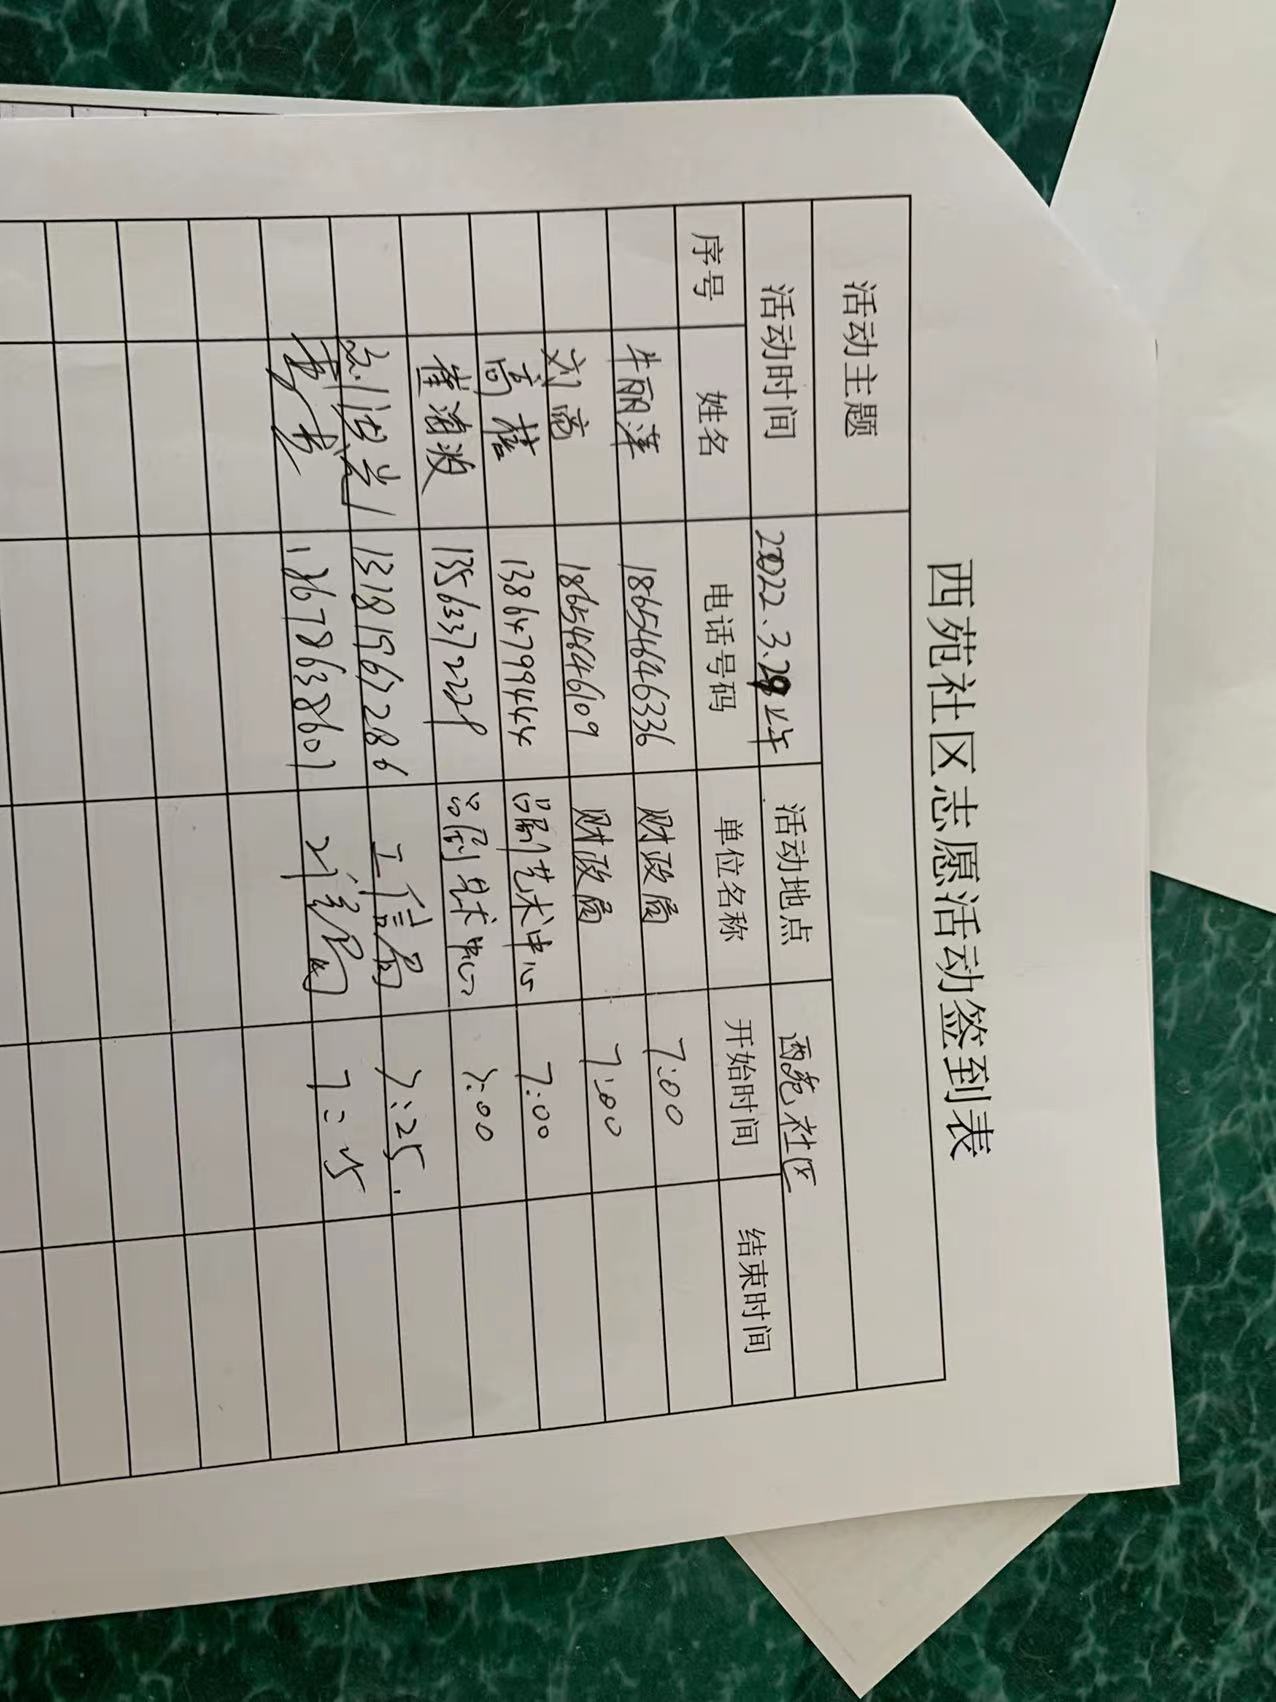 西苑社区志愿活动签到表
活动主题
活动时间 2022.3.29上午 活动地点 西苑社区
序号 姓名 电话号码 单位名称 开始时间 结束时间
牛丽萍 18654646336 财政局 7:00
刘 18654646109 财政局 7:00
高 13864799444 吕剧艺术中心 7:00
崔清波 吕剧艺术中心 7:00
13181967286 工信局 7:25.
13678638601 7:25